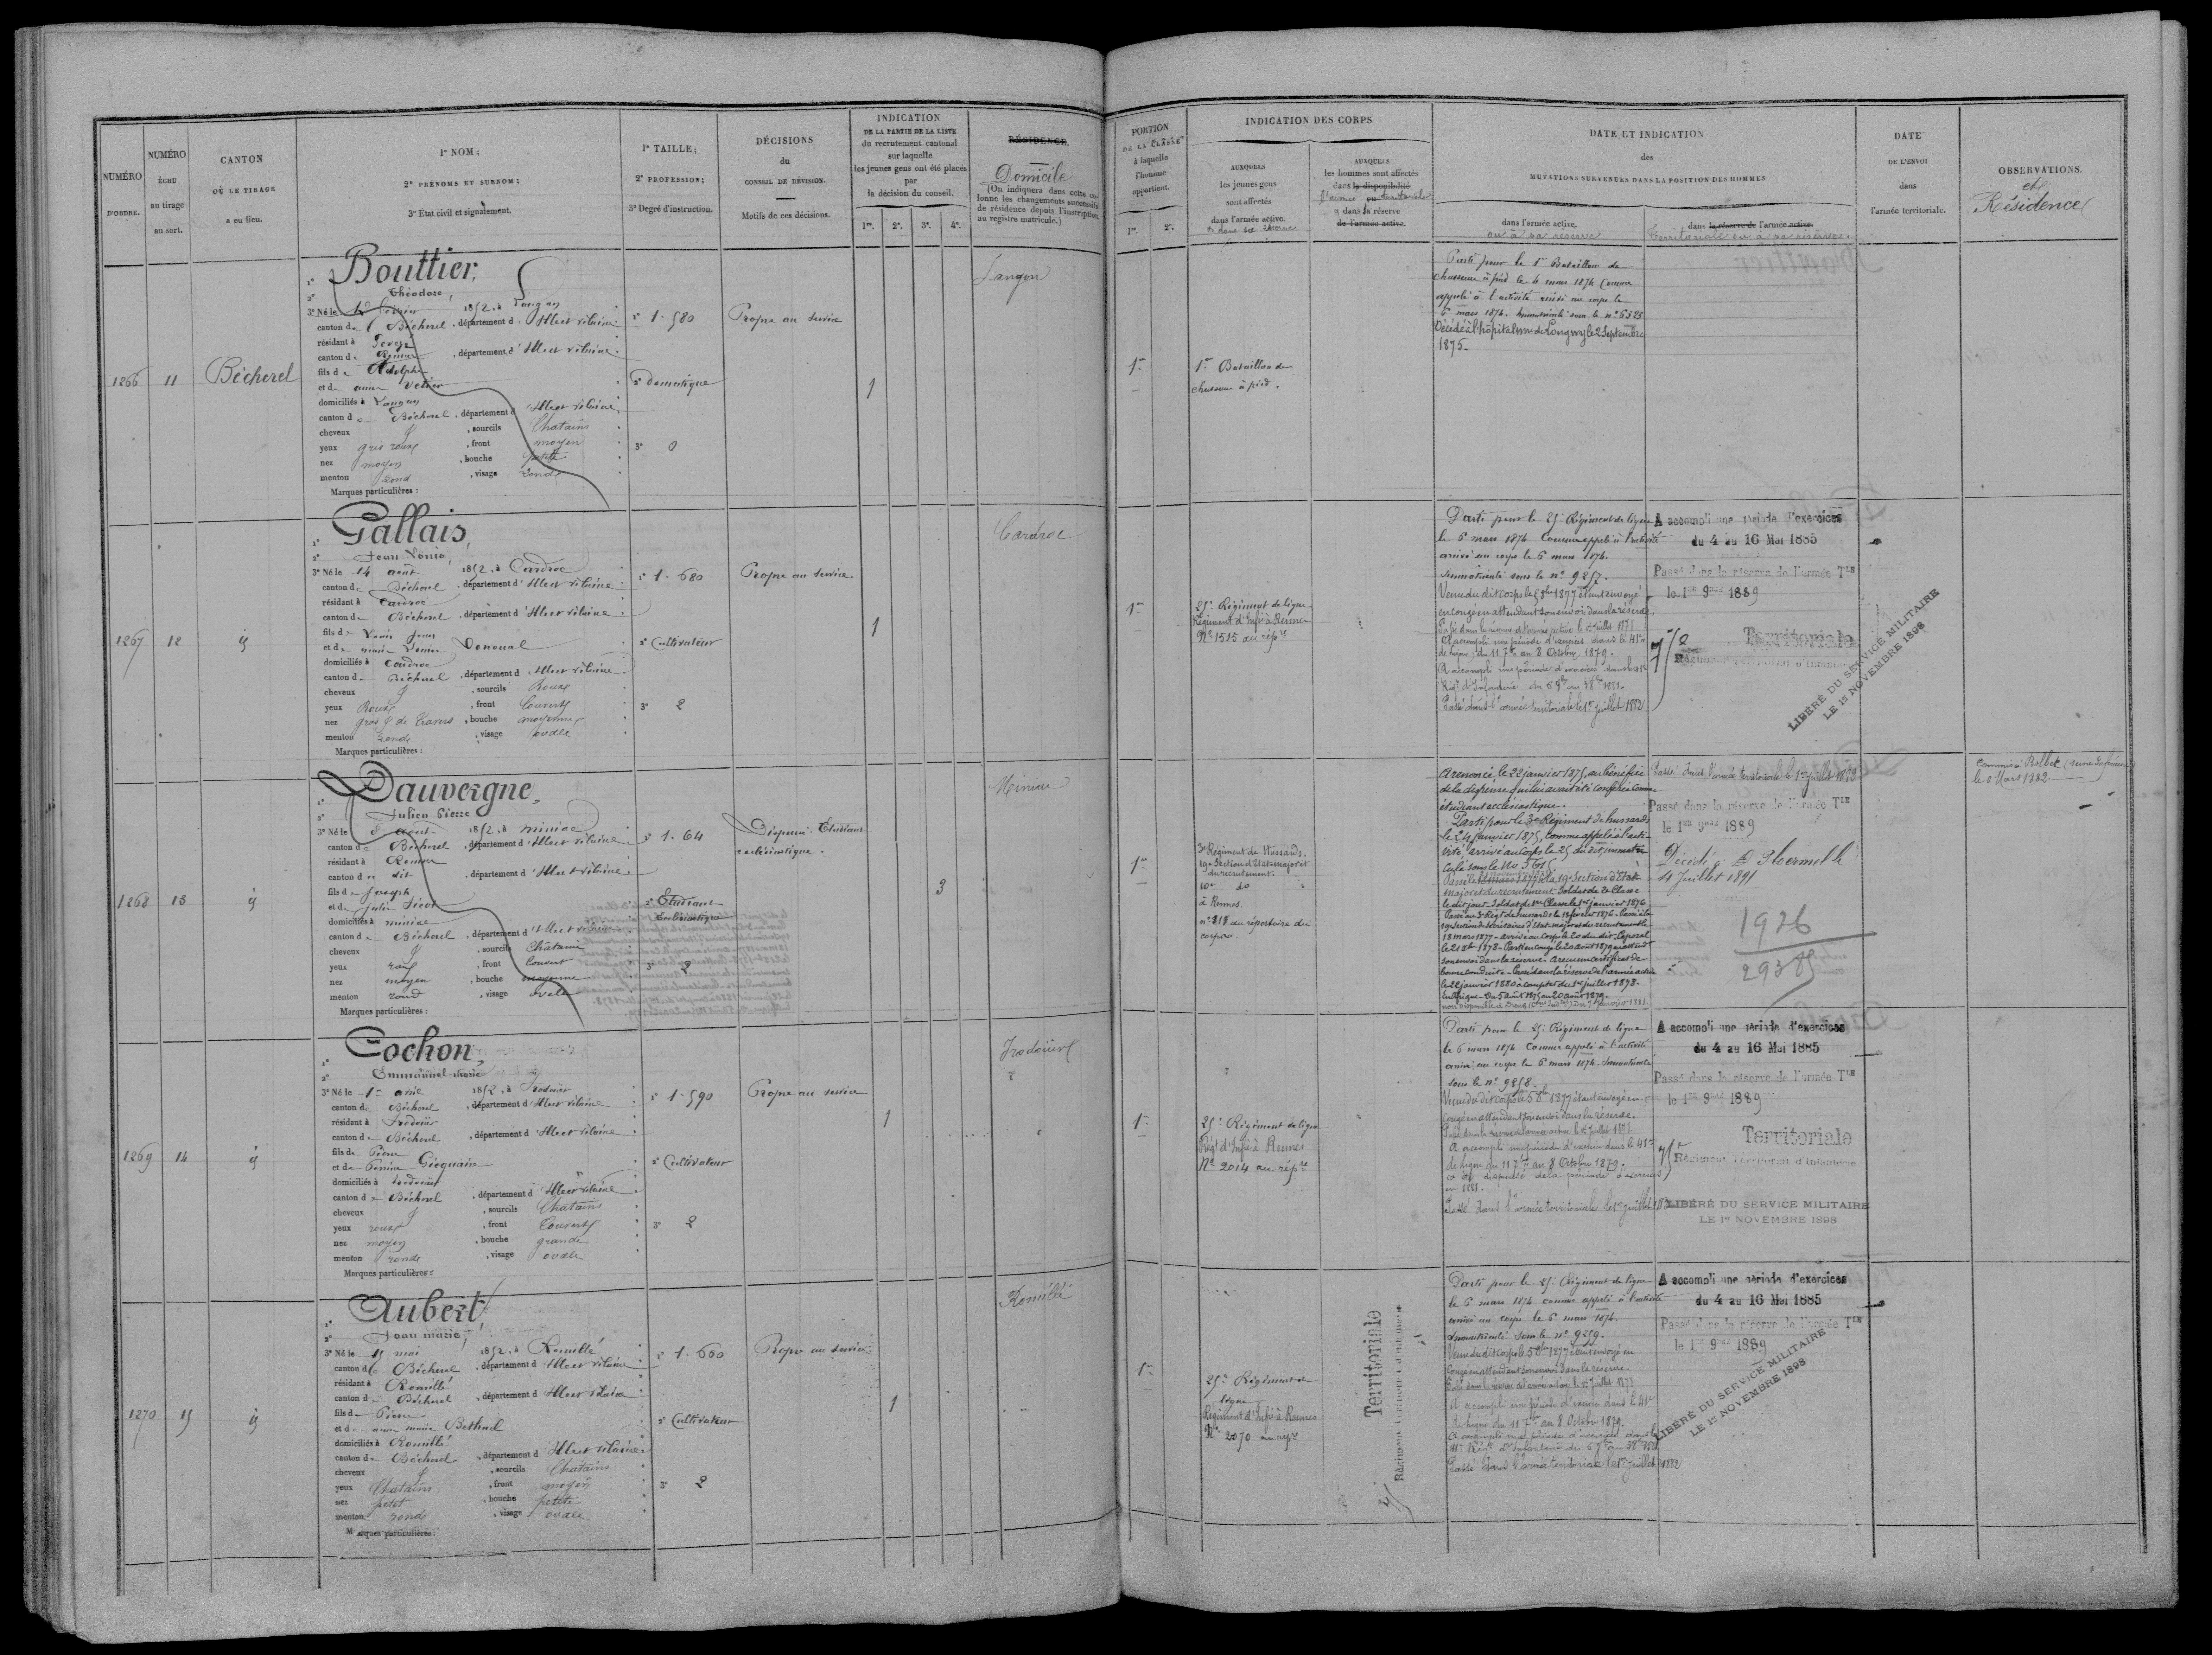 NUMÉRO
D'ORDRE.
NUMÉRO
ÉCHU
au tirage
au sort.
CANTON
OÙ LE TIRAGE
a eu lieu.
1° NOM;
2° PRÉNOMS ET SURNOM;
3° État civil et signalement.
1° TAILLE;
2° PROFESSION;
3° Degré d'instruction.
DÉCISIONS
du
CONSEIL DE RÉVISION.
Motifs de ces décisions.
INDICATION
DE LA PARTIE DE LA LISTE
du recrutement cantonal
sur laquelle
les jeunes gens ont été placés
par
la décision du conseil.
1re. 2e. 3e. 4e.
RÉSIDENCE.
Domicile
(On indiquera dans cette co-
lonne les changements successifs
de résidence depuis l'inscription
au registre matricule.)
PORTION
DE LA CLASSE
à laquelle
l'homme
appartient.
1re. 2e.
INDICATION DES CORPS
AUXQUELS
les jeunes gens
sont affectés
dans l'armée active.
et dans sa réserve
AUXQUELS
les hommes sont affectés
dans la disponibilité
l'armée ou territoriale
dans sa réserve
de l'armée active.
DATE ET INDICATION
des
MUTATIONS SURVENUES DANS LA POSITION DES HOMMES
dans l'armée active.
ou à sa réserve
dans la réserve de l'armée active.
Territoriale ou à sa réserve.
DATE
DE L'ENVOI
dans
l'armée territoriale.
OBSERVATIONS.
et
Résidence
1266 11 Bécherel
1° Bouttier,
2° Théodore,
3° Né le 1852, à Langan
canton de Bécherel, département d'Illeet vilaine
résidant à
canton de Rennes, département d'Illeet vilaine
fils de Adolphe
et de anne
domiciliés à Langan
canton de Bécherel, département d'Illeet vilaine
cheveux &, sourcils Chatains
yeux gris roux, front moyen
nez moyen, bouche petite
menton rond, visage rond
Marques particulières :
1° 1.580
2° Domestique
3° 0
Propre au service
1
Langan
1re
1er Bataillon de
chasseurs à pied.
Parti pour le 1er Bataillon de
chasseurs à pied le 4 mars 1874 Comme
appelé à l'activité arrivé au corps le
6 mars 1874. Immatriculé sous le n° 6323
Décédé à l'hôpital mre de Longwy le 2 Septembre
1875.
1267 12 id
1° Gallais,
2° Jean Louis,
3° Né le 14 août 1852, à Cardroc
canton de Bécherel, département d'Illeet vilaine
résidant à Cardroc
canton de Bécherel, département d'Illeet vilaine
fils de Louis Jean
et de marie Louise Denoual
domiciliés à Cardroc
canton de Bécherel, département d'Illeet vilaine
cheveux &, sourcils Roux
yeux Roux, front Couvert
nez gros & de travers, bouche moyenne
menton rond, visage ovale
Marques particulières :
1° 1.680
2° Cultivateur
3° 2
Propre au service
1
Cardroc
1re
25e Régiment de ligne
Régiment d'Infie à Rennes
N° 1515 au répre
Parti pour le 25e Régiment de ligne
le 6 mars 1874 Comme appelé à l'activité
arrivé au corps le 6 mars 1874.
Immatriculé sous le n° 9257.
Venu du dit corps le 5 8bre 1877 étant envoyé
en congé en attendant son envoi dans la réserve.
Passé dans la réserve de l'armée active le 1er Juillet 1878
A accompli une période d'exercices dans le 41e
de ligne du 11 7bre au 8 Octobre 1879.
A accompli une période d'exercices dans le 41e
Régt d'Infanterie du 6 7bre au 3 8bre 1881.
Passé dans l'armée territoriale le 1er juillet 1882
A accompli une période d'exercices
du 4 au 16 Mai 1885
Passé dans la réserve de l'armée Tle
le 1er 9bre 1889
75e Territoriale
Régiment territorial d'Infanterie
LIBÉRÉ DU SERVICE MILITAIRE
LE 1er NOVEMBRE 1898
1268 13 id
1° Dauvergne,
2° Julien Pierre
3° Né le 8 août 1852, à miniac
canton de Bécherel, département d'Illeet vilaine
résidant à Rennes
canton du dit, département d'Illeet vilaine
fils de Joseph
et de Julie
domiciliés à miniac
canton de Bécherel, département d'Illeet vilaine
cheveux &, sourcils Chatains
yeux roux, front Couvert
nez moyen, bouche moyenne
menton rond, visage ovale
Marques particulières :
1° 1.64
2° Etudiant
Ecclésiastique
3° 2
Dispensé. Etudiant
ecclésiastique.
3
Miniac
1re
3e Régiment de Hussards.
19e Section d'Etat-major et
du recrutement.
10e do
à Rennes.
n° 818 au répertoire du
corps.
A renoncé le 22 janvier 1875, au bénéfice
de la dispense qui lui avait été conférée comme
étudiant ecclésiastique.
Parti pour le 3e Régiment de hussards
le 24 janvier 1875, comme appelé à l'acti-
vité, arrivé au Corps le 25 du dit, immatri-
culé sous le No
Passé le à la 19e Section d'Etat-
major et du recrutement. Soldat de 2e Classe
le dit jour. Soldat de 1re Classe le 1er janvier 1876
Passé au 3e Régt de hussards le 18 février 1876. Passé à la
19e Section de Secrétaires d'Etat-major et du recrutement le
18 mars 1877. arrivé au Corps le 20 du dit. Caporal
le 21 8bre 1878. Parti en congé le 20 août 1879 en attendt
son envoi dans la réserve. A reçu un certificat de
bonne conduite. Passé dans la réserve de l'armée active
le 22 janvier 1880 à compter du 1er juillet 1878.
En Afrique du 5 août 1875 au 20 août 1879.
Passé dans l'armée territoriale le 1er juillet 1882
Passé dans la réserve de l'armée Tle
le 1er 9bre 1889
Décédé à Ploërmel le
4 Juillet 1891
1926
29385
Commis à Bolbec (Seine Inférieure)
le 8 Mars 1882
1269 14 id
1° Cochon,
2° Emmanuel marie
3° Né le 1er avril 1852, à Irodouër
canton de Bécherel, département d'Illeet vilaine
résidant à Irodouër
canton de Bécherel, département d'Illeet vilaine
fils de Pierre
et de Perrine Gicquaire
domiciliés à Irodouër
canton de Bécherel, département d'Illeet vilaine
cheveux &, sourcils Chatains
yeux roux, front Couvert
nez moyen, bouche grande
menton rond, visage ovale
Marques particulières :
1° 1.590
2° Cultivateur
3° 2
Propre au service
1
Irodouër
1re
25e Régiment de ligne
Régt d'Infie à Rennes
N° 2014 au répre
Parti pour le 25e Régiment de ligne
le 6 mars 1874 Comme appelé à l'activité
arrivé au corps le 6 mars 1874. Immatriculé
sous le n° 9258.
Venu du dit corps le 5 8bre 1877 étant envoyé en
congé en attendant son envoi dans la réserve.
Passé dans la réserve de l'armée active le 1er Juillet 1878
A accompli une période d'exercices dans le 41e
de ligne du 11 7bre au 8 Octobre 1879.
a été dispensé de la période d'exercices
en 1881.
Passé dans l'armée territoriale le 1er juillet 1882
A accompli une période d'exercices
du 4 au 16 Mai 1885
Passé dans la réserve de l'armée Tle
le 1er 9bre 1889
75e Territoriale
Régiment territorial d'Infanterie
LIBÉRÉ DU SERVICE MILITAIRE
LE 1er NOVEMBRE 1898
1270 15 id
1° Aubert,
2° Jean marie,
3° Né le 15 mai 1852, à Romillé
canton de Bécherel, département d'Illeet vilaine
résidant à Romillé
canton de Bécherel, département d'Illeet vilaine
fils de Pierre
et de anne marie Bethuel
domiciliés à Romillé
canton de Bécherel, département d'Illeet vilaine
cheveux &, sourcils Chatains
yeux Chatains, front moyen
nez petit, bouche petite
menton rond, visage ovale
Marques particulières :
1° 1.660
2° Cultivateur
3° 2
Propre au service
1
Romillé
1re
25e Régiment de
ligne
Régiment d'Infie à Rennes
N° 2070 au répre
75 Territoriale
Régiment territorial d'Infanterie
Parti pour le 25e Régiment de ligne
le 6 mars 1874 comme appelé à l'activité
arrivé au corps le 6 mars 1874.
Immatriculé sous le n° 9259.
Venu du dit corps le 5 8bre 1877 étant envoyé en
congé en attendant son envoi dans la réserve.
Passé dans la réserve de l'armée active le 1er Juillet 1878
A accompli une période d'exercices dans le 41e
de ligne du 11 7bre au 8 Octobre 1879.
A accompli une période d'exercices dans le
41e Régt d'Infanterie du 6 7bre au 3 8bre 1881
Passé dans l'armée territoriale le 1er juillet 1882
A accompli une période d'exercices
du 4 au 16 Mai 1885
Passé dans la réserve de l'armée Tle
le 1er 9bre 1889
LIBÉRÉ DU SERVICE MILITAIRE
LE 1er NOVEMBRE 1898